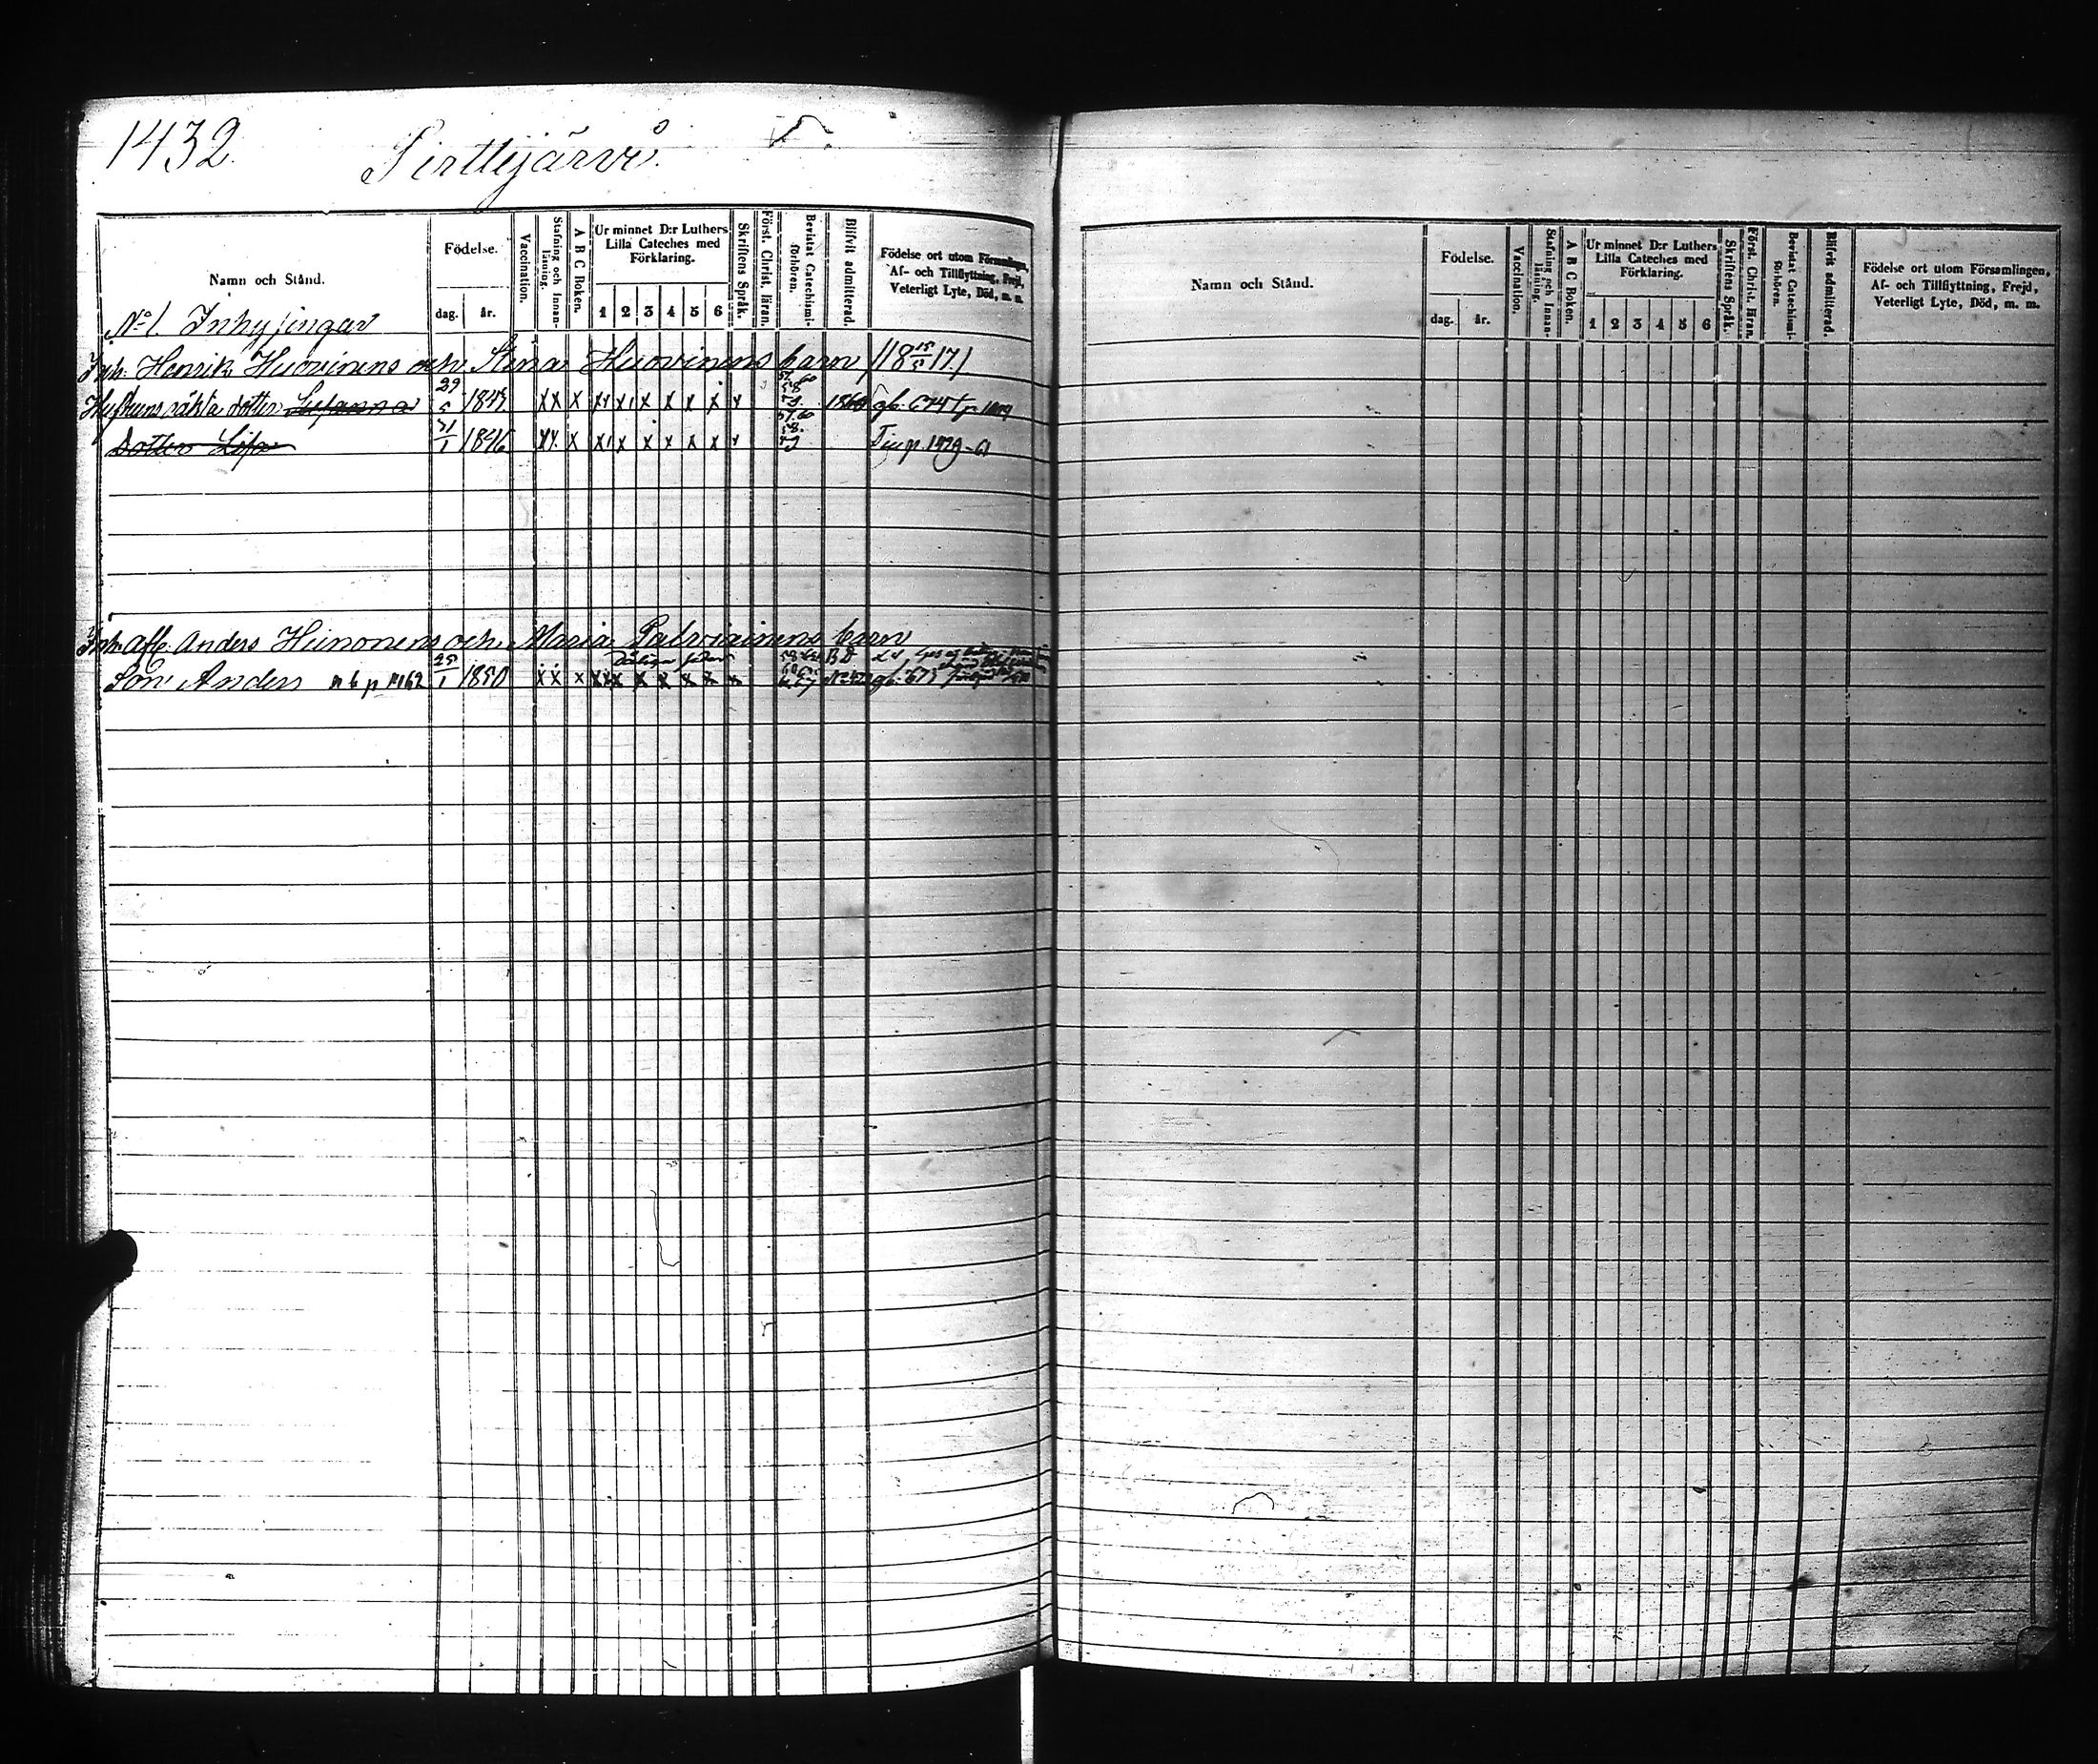 1432. Pirttijärvi.
Namn och Stånd.
Födelse.
dag. år.
Vaccination.
Stafning och Innan-läsning.
A B C Boken.
Ur minnet D:r Luthers Lilla Cateches med Förklaring.
1 2 3 4 5 6
Skriftens Språk.
Först. Christ. läran.
Bevistat Catechismi-förhören.
Blifvit admitterad.
Födelse ort utom Församlingen, Af- och Tillflyttning, Frejd, Veterligt Lyte, Död, m. m.
No 1. Inhysingar
Inh. Henrik Huovinens och Stina Huovinens barn
Hustruns oäkta dotter Susanna 29/5 1843 X X X X X X X X X
Dotter Lisa 1846 X X X X X X X X X
Inh. Afl. Anders Heinonens och Maria Palviainens barn
Son Anders 25/1 1850 X X X X X X X X X
Namn och Stånd.
Födelse.
dag. år.
Vaccination.
Stafning och Innan-läsning.
A B C Boken.
Ur minnet D:r Luthers Lilla Cateches med Förklaring.
1 2 3 4 5 6
Skriftens Språk.
Först. Christ. läran.
Bevistat Catechismi-förhören.
Blifvit admitterad.
Födelse ort utom Församlingen, Af- och Tillflyttning, Frejd, Veterligt Lyte, Död, m. m.